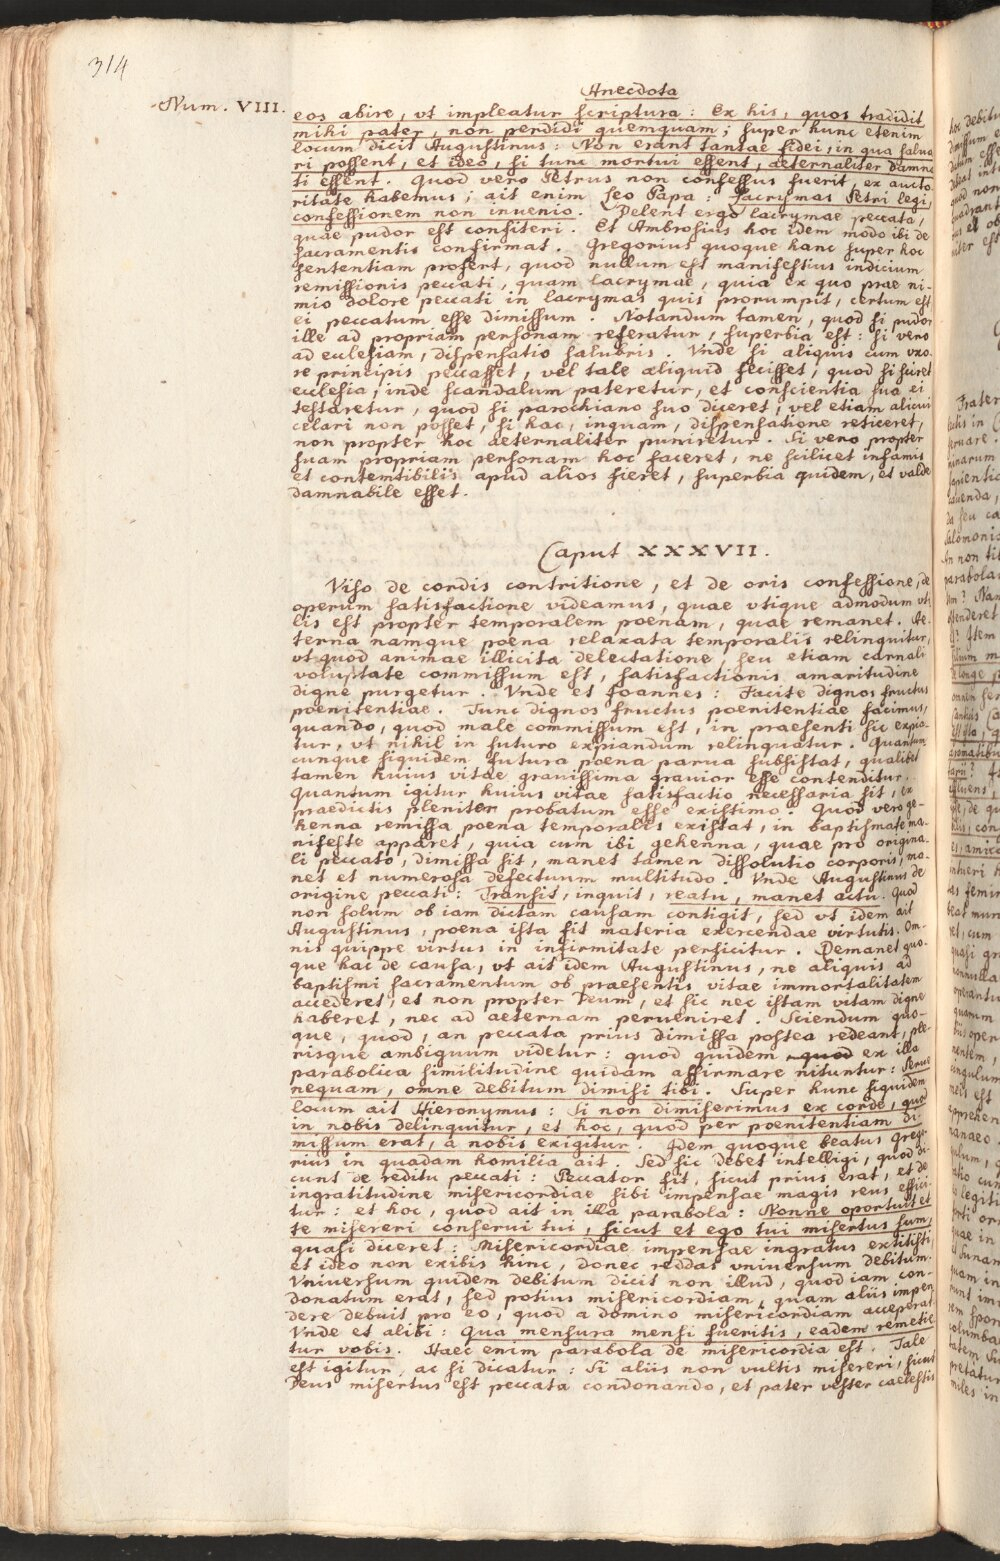 314
Anecdota
Num. VIII.
eos abire, vt impleatur scriptura: Ex his, quos tradidit
mihi pater, non perdidi quemquam; super hunc etenim
locum dicit Augustinus: Non erant tantae fidei, in qua salua
ri possent, et ideo, si tunc mortui essent, aeternaliter damna
ti essent. Quod vero Petrus non confessus fuerit, ex aucto
ritate habemus; ait enim Leo Papa: Lacrymas Petri legi,
confessionem non inuenio. Delent ergo lacrymae peccata,
quae pudor est confiteri. Et Ambrosius hoc idem modo ibi de
sacramentis confirmat. Gregorius quoque hanc super hoc
sententiam profert, quod nullum est manifestius indicium
remissionis peccati, quam lacrymae, quia ex quo prae ni-
mio dolore peccati in lacrymas quis prorumpit, certum est
ei peccatum esse dimissum. Notandum tamen, quod si pudor
ille ad propriam personam referatur, superbia est: si vero
ad ecclesiam, dispensatio salubris. Vnde si aliquis cum vxo
re principis peccasset, vel tale aliquid fecisset, quod si sciret
ecclesia, inde scandalum pateretur, et conscientia sua ei
testaretur, quod si parochiano suo diceret, vel etiam alicui
celari non posset, si hac, inquam, dispensatione reticeret,
non propter hoc aeternaliter puniretur. Si vero propter
suam propriam personam hoc faceret, ne scilicet infamis
et contemtibilis apud alios fieret, superbia quidem, et valde
damnabile esset.
Caput XXXVII.
Viso de cordis contritione, et de oris confessione, de
operum satisfactione videamus, quae vtique admodum vti
lis est propter temporalem poenam, quae remanet. Ae-
terna namque poena relaxata temporalis relinquitur,
vt quod animae illicita delectatione, seu etiam carnali
voluptate commissum est, satisfactionis amaritudine
digne purgetur. Vnde et Joannes: Facite dignos fructus
poenitentiae. Tunc dignos fructus poenitentiae facimus,
quando, quod male commissum est, in praesenti sic expia-
tur, vt nihil in futuro expiandum relinquatur. Quantum
cunque siquidem futura poena parua subsistat, qualibet
tamen huius vitae grauissima grauior esse contenditur.
Quantum igitur huius vitae satisfactio necessaria sit, ex
praedictis pleniter probatum esse existimo. Quod vero ge-
henna remissa poena temporalis existat, in baptismate ma-
nifeste apparet, quia cum ibi gehenna, quae pro origina-
li peccato, dimissa sit, manet tamen dissolutio corporis, ma-
net et numerosa defectuum multitudo. Vnde Augustinus de
origine peccati: Transit, inquit, reatu, manet actu. Quod
non solum ob iam dictam causam contigit, sed vt idem ait
Augustinus, poena ista fit materia exercendae virtutis. Om-
nis quippe virtus in infirmitate perficitur. Demanet quo-
que hac de causa, vt ait idem Augustinus, ne aliquis ad
baptismi sacramentum ob praesentis vitae immortalitatem
accederet, et non propter Deum, et sic nec istam vitam digne
haberet, nec ad aeternam perueniret. Sciendum quo-
que, quod, an peccata prius dimissa postea redeant, ple-
risque ambiguum videtur: quod quidem quod ex illa
parabolica similitudine quidam affirmare nituntur: Serue
nequam, omne debitum dimisi tibi. Super hunc siquidem
locum ait Hieronymus: Si non dimiserimus ex corde, quod
in nobis delinquitur, et hoc, quod per poenitentiam di-
missum erat, a nobis exigitur. Idem quoque beatus Grego-
rius in quadam homilia ait. Sed sic debet intelligi, quod di-
cunt de reditu peccati: Peccator sit, sicut prius erat, et de
ingratitudine misericordiae sibi impensae magis reus effici-
tur: et hoc, quod ait in illa parabola: Nonne oportuit et
te misereri conserui tui, sicut et ego tui misertus sum,
quasi diceret: Misericordiae impensae ingratus extitisti,
et ideo non exibis hinc, donec reddas vniuersum debitum.
Vniuersum quidem debitum dicit non illud, quod iam con-
donatum erat, sed potius misericordiam, quam aliis impen
dere debuit pro eo, quod a domino misericordiam acceperat.
Vnde et alibi: Qua mensura mensi fueritis, eadem remetie
tur vobis. Haec enim parabola de misericordia est. Tale
est igitur, ac si dicatur: Si aliis non vultis misereri, sicut
Deus misertus est peccata condonando, et pater vester caelestis